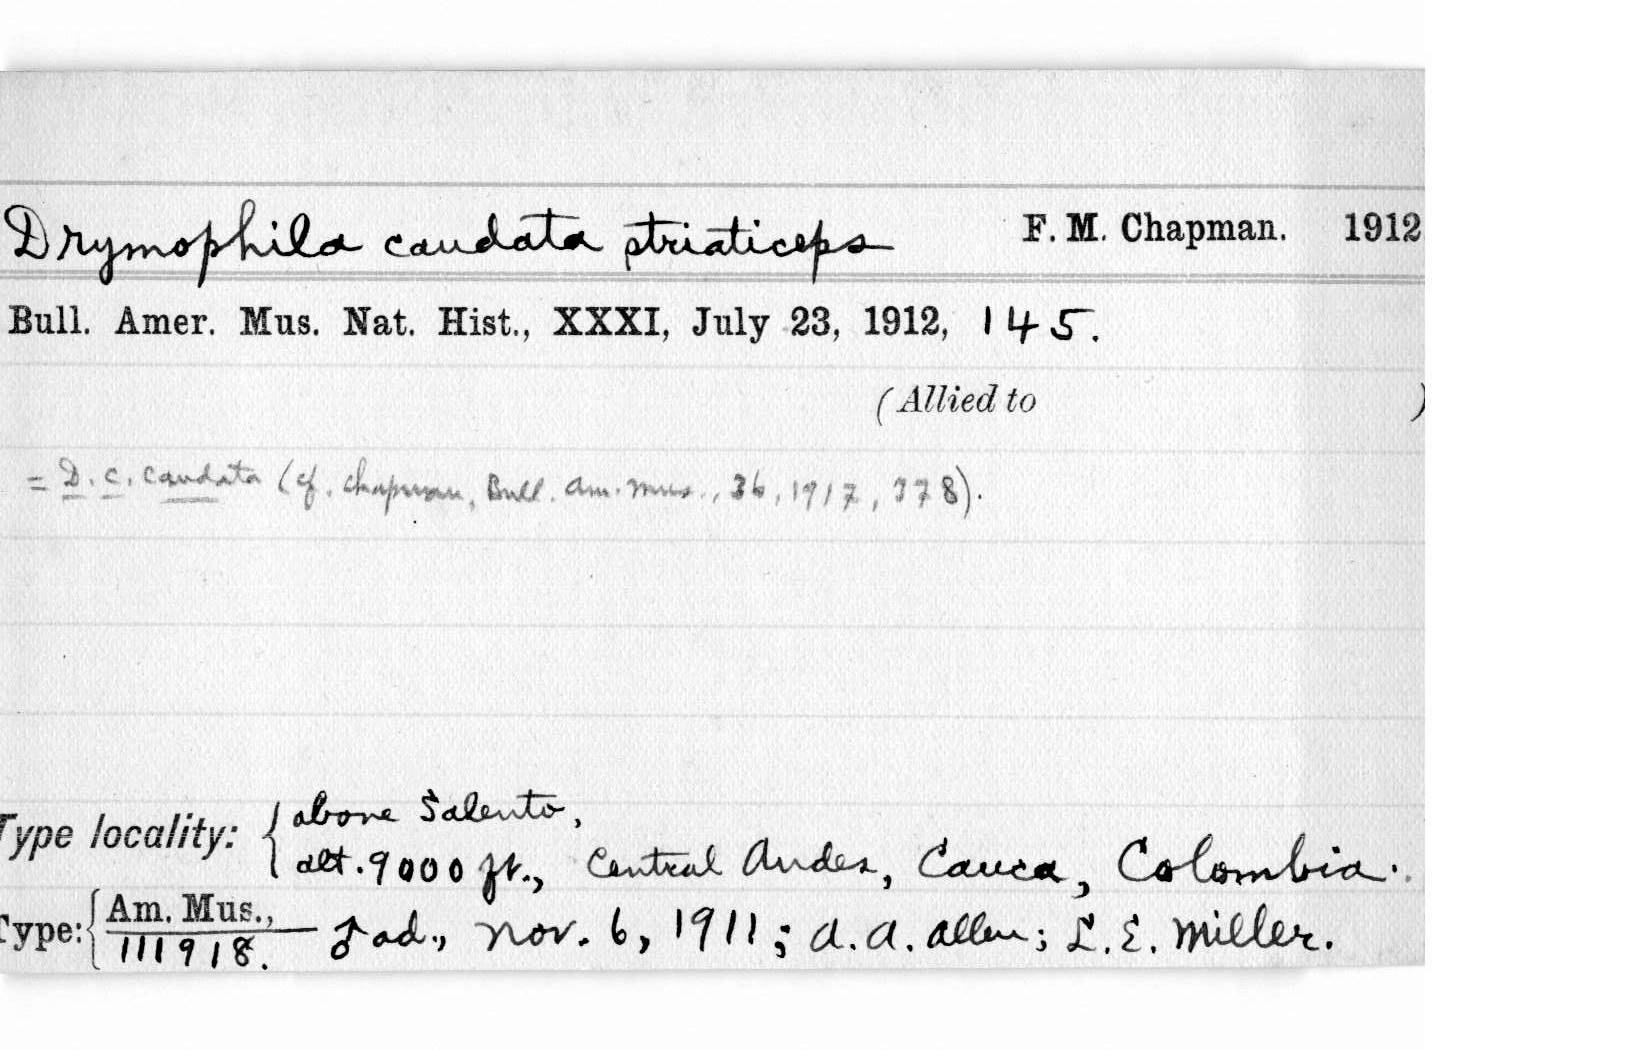 Drymophila caudata striaticeps F. M. Chapman. 1912
Bull. Amer. Mus. Nat. Hist., XXXI, July 23, 1912, 145.
(Allied to )
= D. c. caudata (cf. Chapman, Bull. Am. Mus., 36, 1917, 378).
Type locality: { above Salento,
alt. 9000 ft., Central Andes, Cauca, Colombia.
Type: { Am. Mus.,
111918. — ♂ ad., Nov. 6, 1911; A. A. Allen; L. E. Miller.